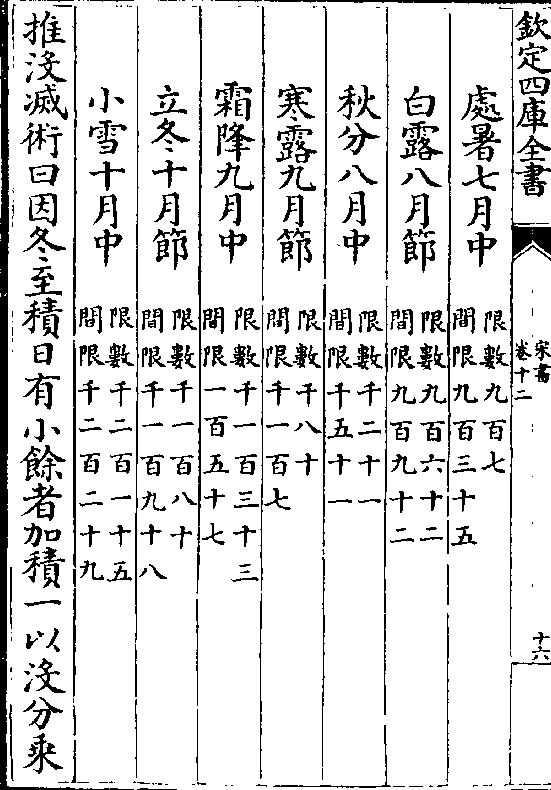 欽定四庫全書
宋書
卷十二
十六
處暑七月中
限數九百七
間限九百三十五
白露八月節
限數九百六十二
間限九百九十二
秋分八月中
限數千二十一
間限千五十一
寒露九月節
限數千八十
間限千一百七
霜降九月中
限數千一百三十三
間限一百五十七
立冬十月節
限數千一百八十
間限千一百九十八
小雪十月中
限數千二百一十五
間限千二百二十九
推沒滅術曰因冬至積日有小餘者加積一以沒分乗